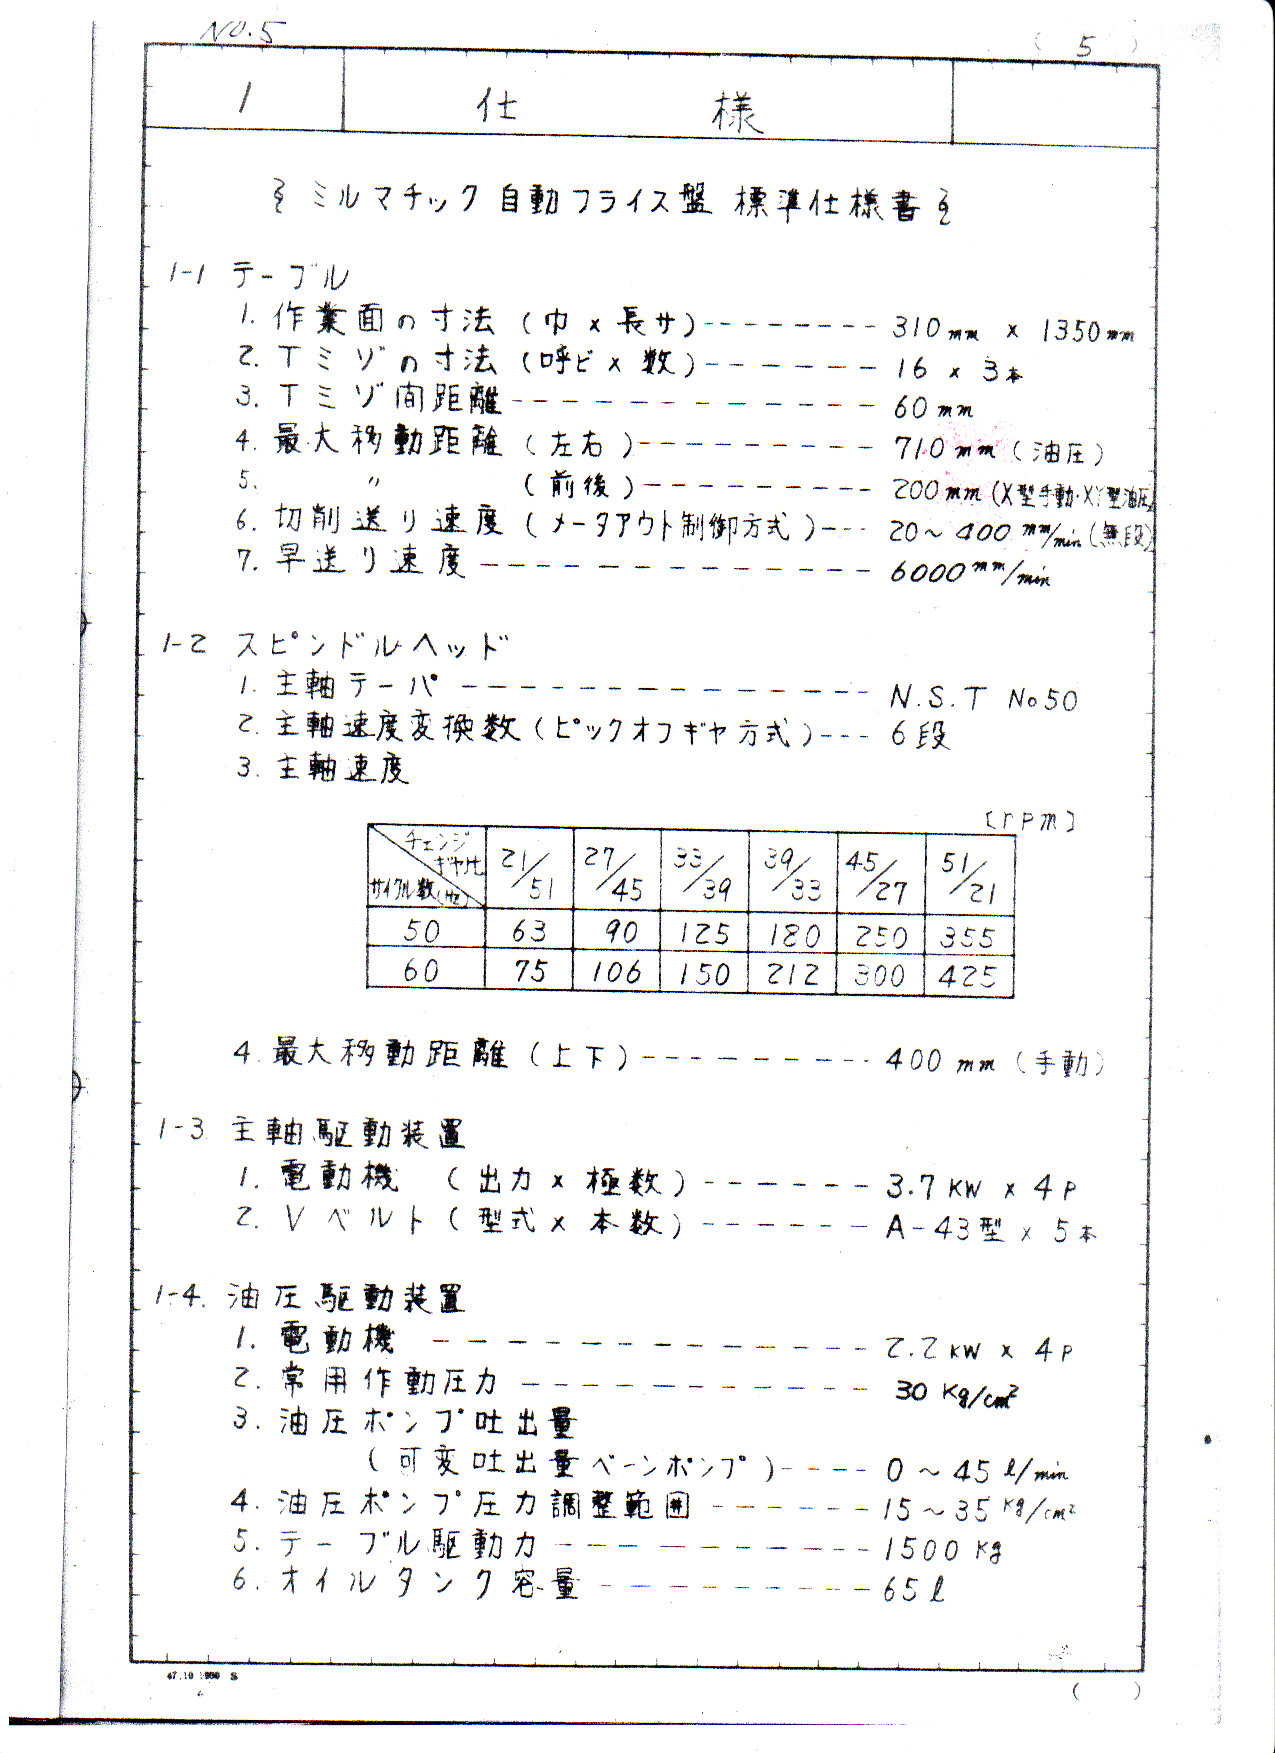 No.5
( 5 )
1 仕 様
ミルマチック 自動フライス盤 標準仕様書
1-1 テーブル
1. 作業面の寸法 (巾 x 長サ)-------- 310mm x 1350mm
2. Tミゾの寸法 (呼ビ x 数)------ 16 x 3本
3. Tミゾ間距離------------- 60mm
4. 最大移動距離 (左右)--------- 710mm (油圧)
5. 〃 (前後)--------- 200mm (X型手動・XY型油圧)
6. 切削送り速度 (メータアウト制御方式)--- 20~400 mm/min (無段)
7. 早送り速度-------------- 6000 mm/min
1-2 スピンドルヘッド
1. 主軸テーパ--------------- N.S.T No50
2. 主軸速度変換数(ピックオフギヤ方式)--- 6段
3. 主軸速度
[rpm]
チェンジギヤ比 サイクル数(Hz) 21/51 27/45 33/39 39/33 45/27 51/21
50 63 90 125 180 250 355
60 75 106 150 212 300 425
4. 最大移動距離 (上下)---------- 400mm (手動)
1-3 主軸駆動装置
1. 電動機 (出力 x 極数)------ 3.7KW x 4P
2. Vベルト (型式 x 本数)------ A-43型 x 5本
1-4. 油圧駆動装置
1. 電動機 ------------- 2.2KW x 4P
2. 常用作動圧力 ----------- 30 Kg/cm²
3. 油圧ポンプ吐出量
(可変吐出量ベーンポンプ)---- 0~45 l/min
4. 油圧ポンプ圧力調整範囲 ------ 15~35 Kg/cm²
5. テーブル駆動力---------- 1500 Kg
6. オイルタンク容量--------- 65 l
47.10 1000 S
( )